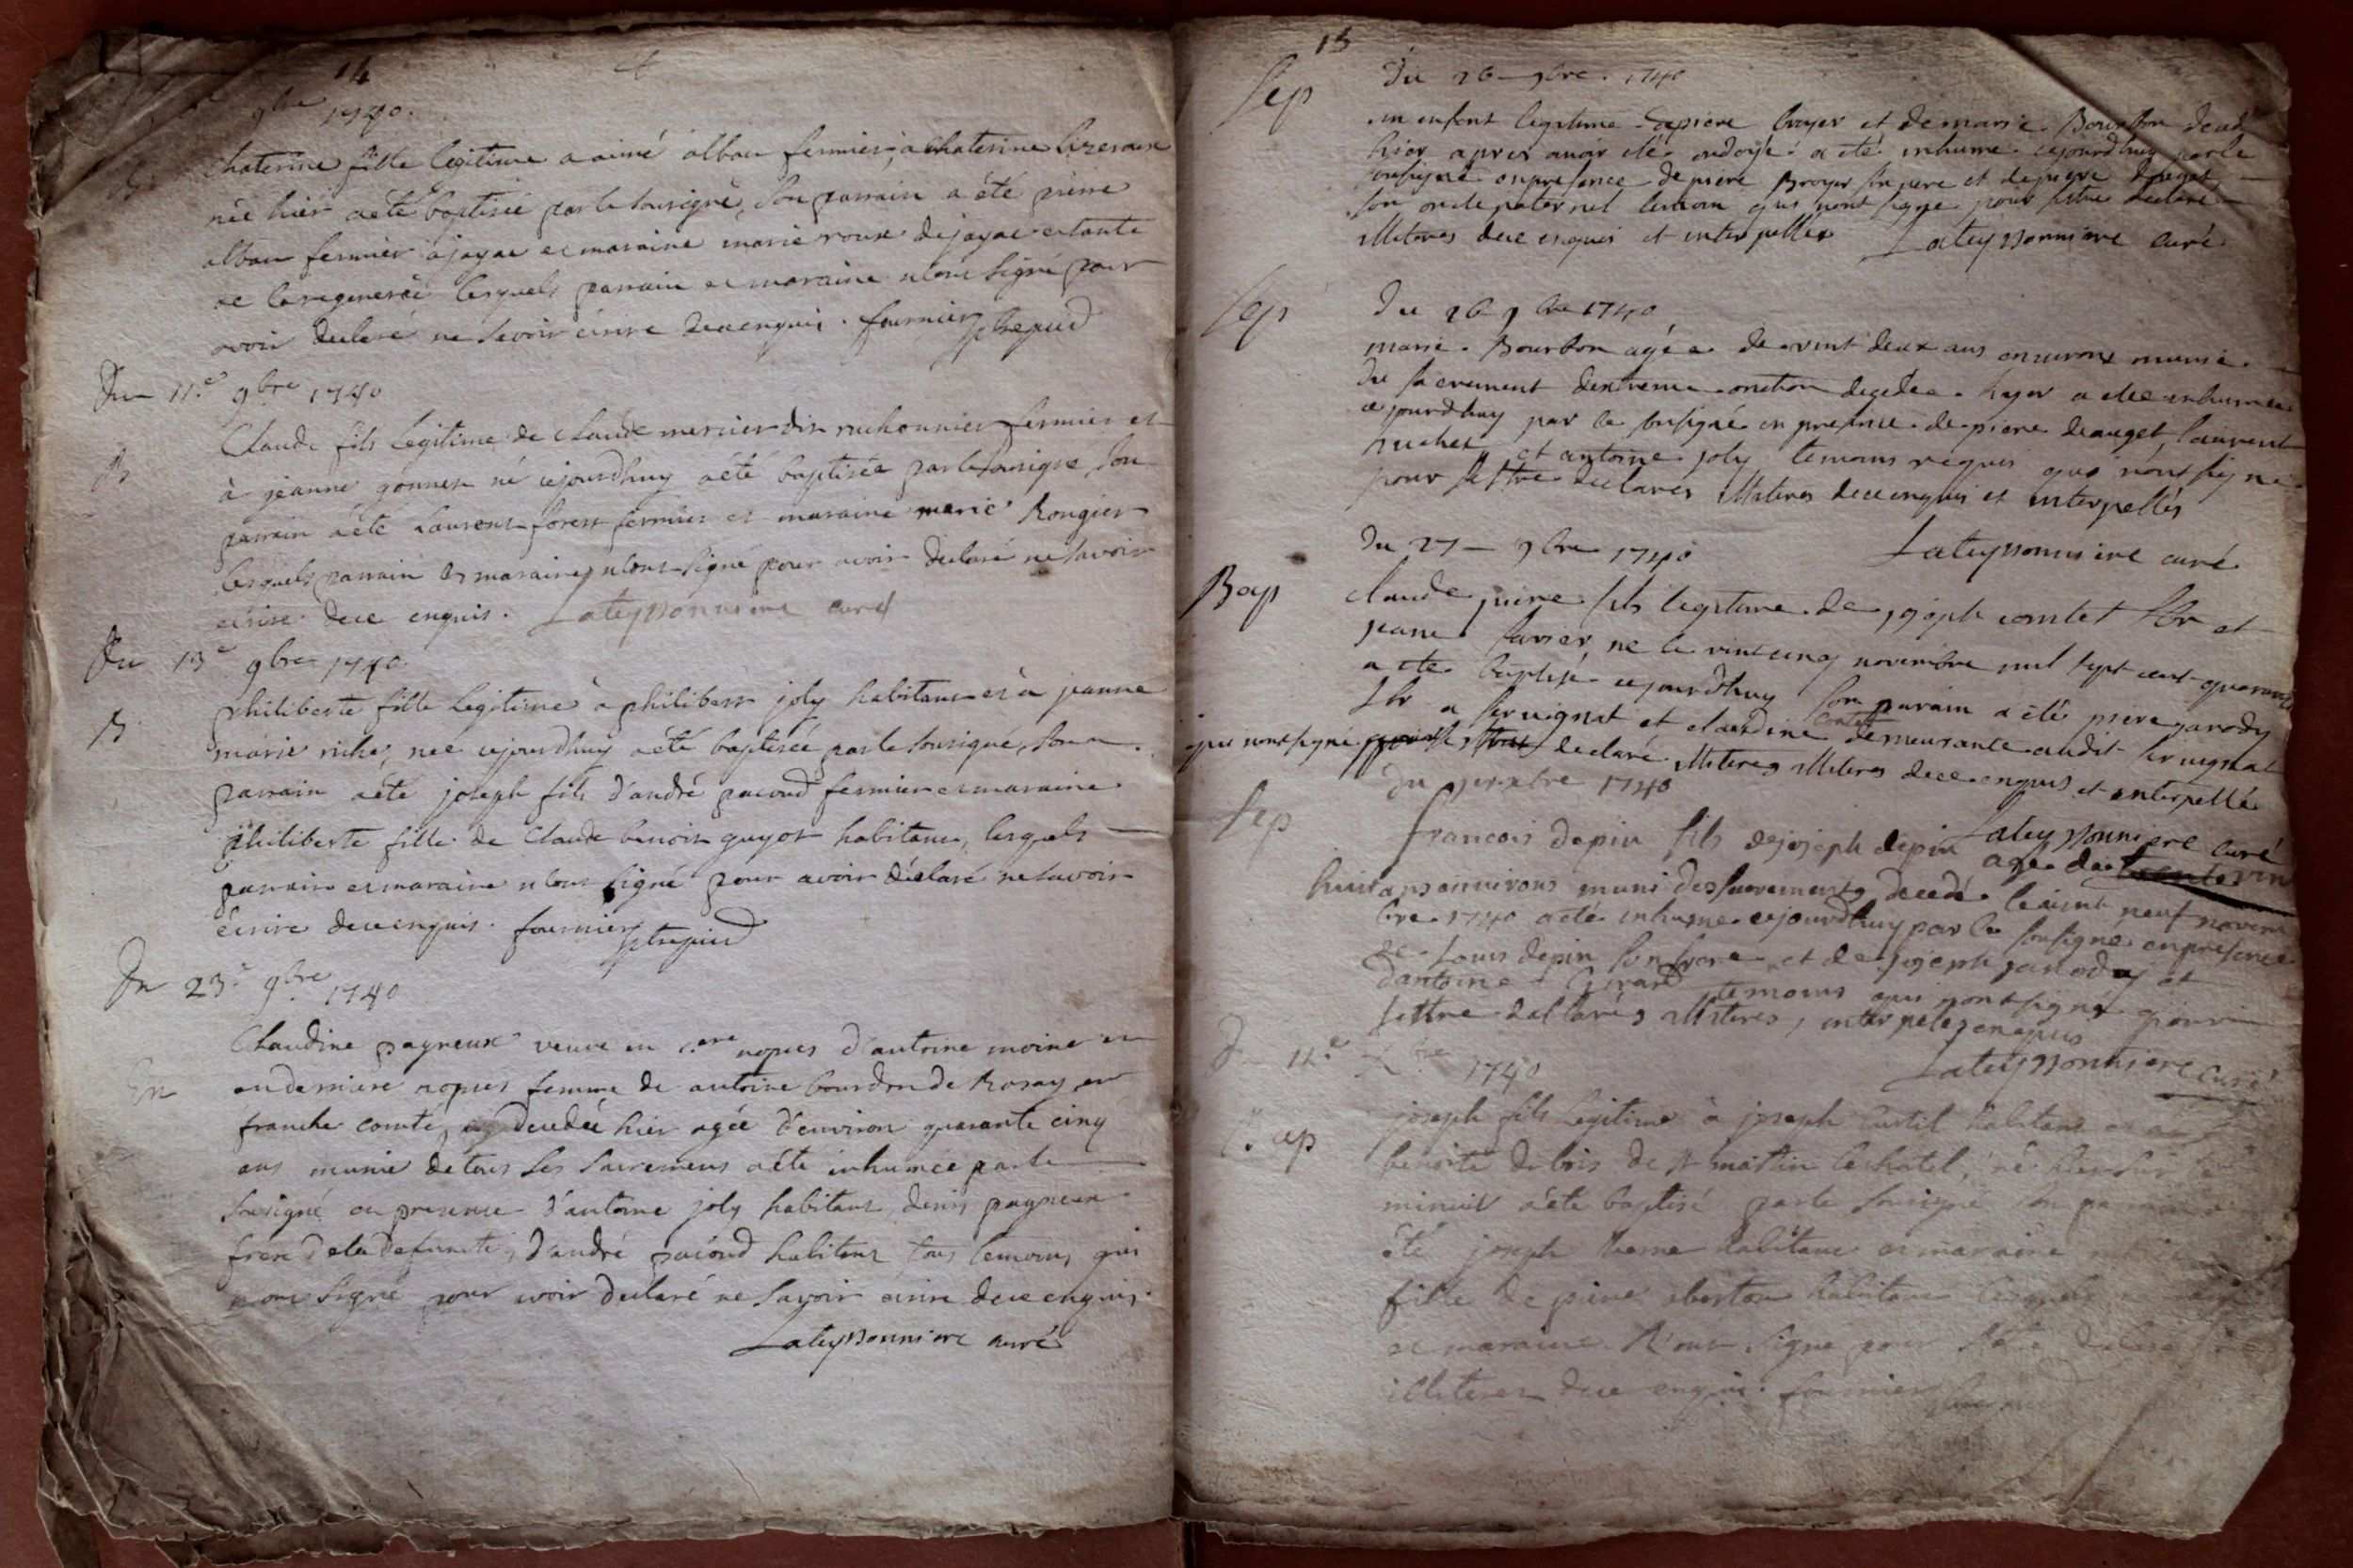 14
9bre 1740.
Chaterine fille legitime a aimé alban fermier, a Chaterine
née hier a été baptisée par le sousigné, son parrain a été pierre
alban fermier a jayac et maraine marie roux de jayac et tante
de la regenerée lesquels parrain et maraine n'ont signé pour
avoir declaré ne savoir écrire de ce enquis. fournier
Du 11.e 9bre 1740
B
Claude fils legitime de Claude mercier dit ruchonnier fermier et
à jeanne gonnet né cejourdhuy a été baptisée par le sousigné, son
parrain a été Laurent forest fermier et maraine marie Rongier
lesquels parrain et maraine n'ont signé pour avoir declaré ne savoir
écrire de ce enquis. Lateyssonniere curé
Du 13e 9bre 1740.
B
philiberte fille legitime à philibert joly habitant et à jeanne
marie riche, née cejourdhuy a été baptisée par le sousigné, son
parrain a été joseph fils d'andré pacoud fermier et maraine
philiberte fille de Claude benoit guyot habitant, lesquels
parrain et maraine n'ont signé pour avoir déclaré ne savoir
écrire de ce enquis. fournier
Du 23e 9bre 1740
En
Claudine pagneux veuve en 1.ere nopces d'antoine moine et
en derniere nopces femme de antoine bourdon de Rosay en
franche comté, decedée hier agée d'environ quarante cinq
ans munie de tous ses sacremens a été inhumée par le
sousigné en presence d'antoine joly habitant, denis pagneux
frere de la defuncte, d'andré pacoud habitant tous temoins, qui
n'ont signé pour avoir declaré ne savoir écrire de ce enquis.
Lateyssonniere curé
15
Sep
Du 26 9bre. 1740
un enfant legitime de piere broyer et de marie Bourbon decedé
hier apres avoir eté ondoyé a eté inhumé cejourdhuy par le
sousigné en presence de piere Broyer son pere et de piere
son oncle paternel temoin qui n'ont signe pour s'etre declaré
illiteres de ce enquis et interpellés Lateyssonniere curé
Sep
Du 26 9bre 1740
marie Bourbon agée de vint deux ans environs munie
du sacrement d'extreme onction decedée hyer a eté inhumée
cejourdhuy par le sousigné en presence de piere deauget, laurent
puchet et antoine joly temoins requis qui n'ont signé
pour s'etre declarés illiteres de ce enquis et interpellés
Lateyssonniere curé
Du 27 9bre 1740
Bap
claude piere fils legitime de joseph comtet et
jeane, ne le vint cinq novembre mil sept cent quarante
a ete baptisé cejourdhuy son parain a été piere parody
a servignat et claudine demeurante audit servignat
qui n'ont signé declaré illiteres illiteres de ce enquis et interpellé
Lateyssonniere curé
Du 1740
Sep
francois depin fils de joseph depin agé de vin
huit ans environs muni des sacrements decedé le vint neuf novem
bre 1740 a eté inhumé cejourdhuy par le sousigné en presence
de Louis depin son frere et de joseph parody et
d'antoine Girard temoins qui n'ont signé pour
s'ettre declarés illiteres, interpelés enquis
Lateyssonniere curé
11.e 1740
joseph fils legitime à joseph curtil habitant et a
benoite debris de st martin le chatel, né hier sur
minuit a été baptisé par le sousigné son parrain a
été joseph habitant et maraine
fille de pierre habitant lesquels
et maraine n'ont signé pour declaré
illiteres de ce enquis. fournier